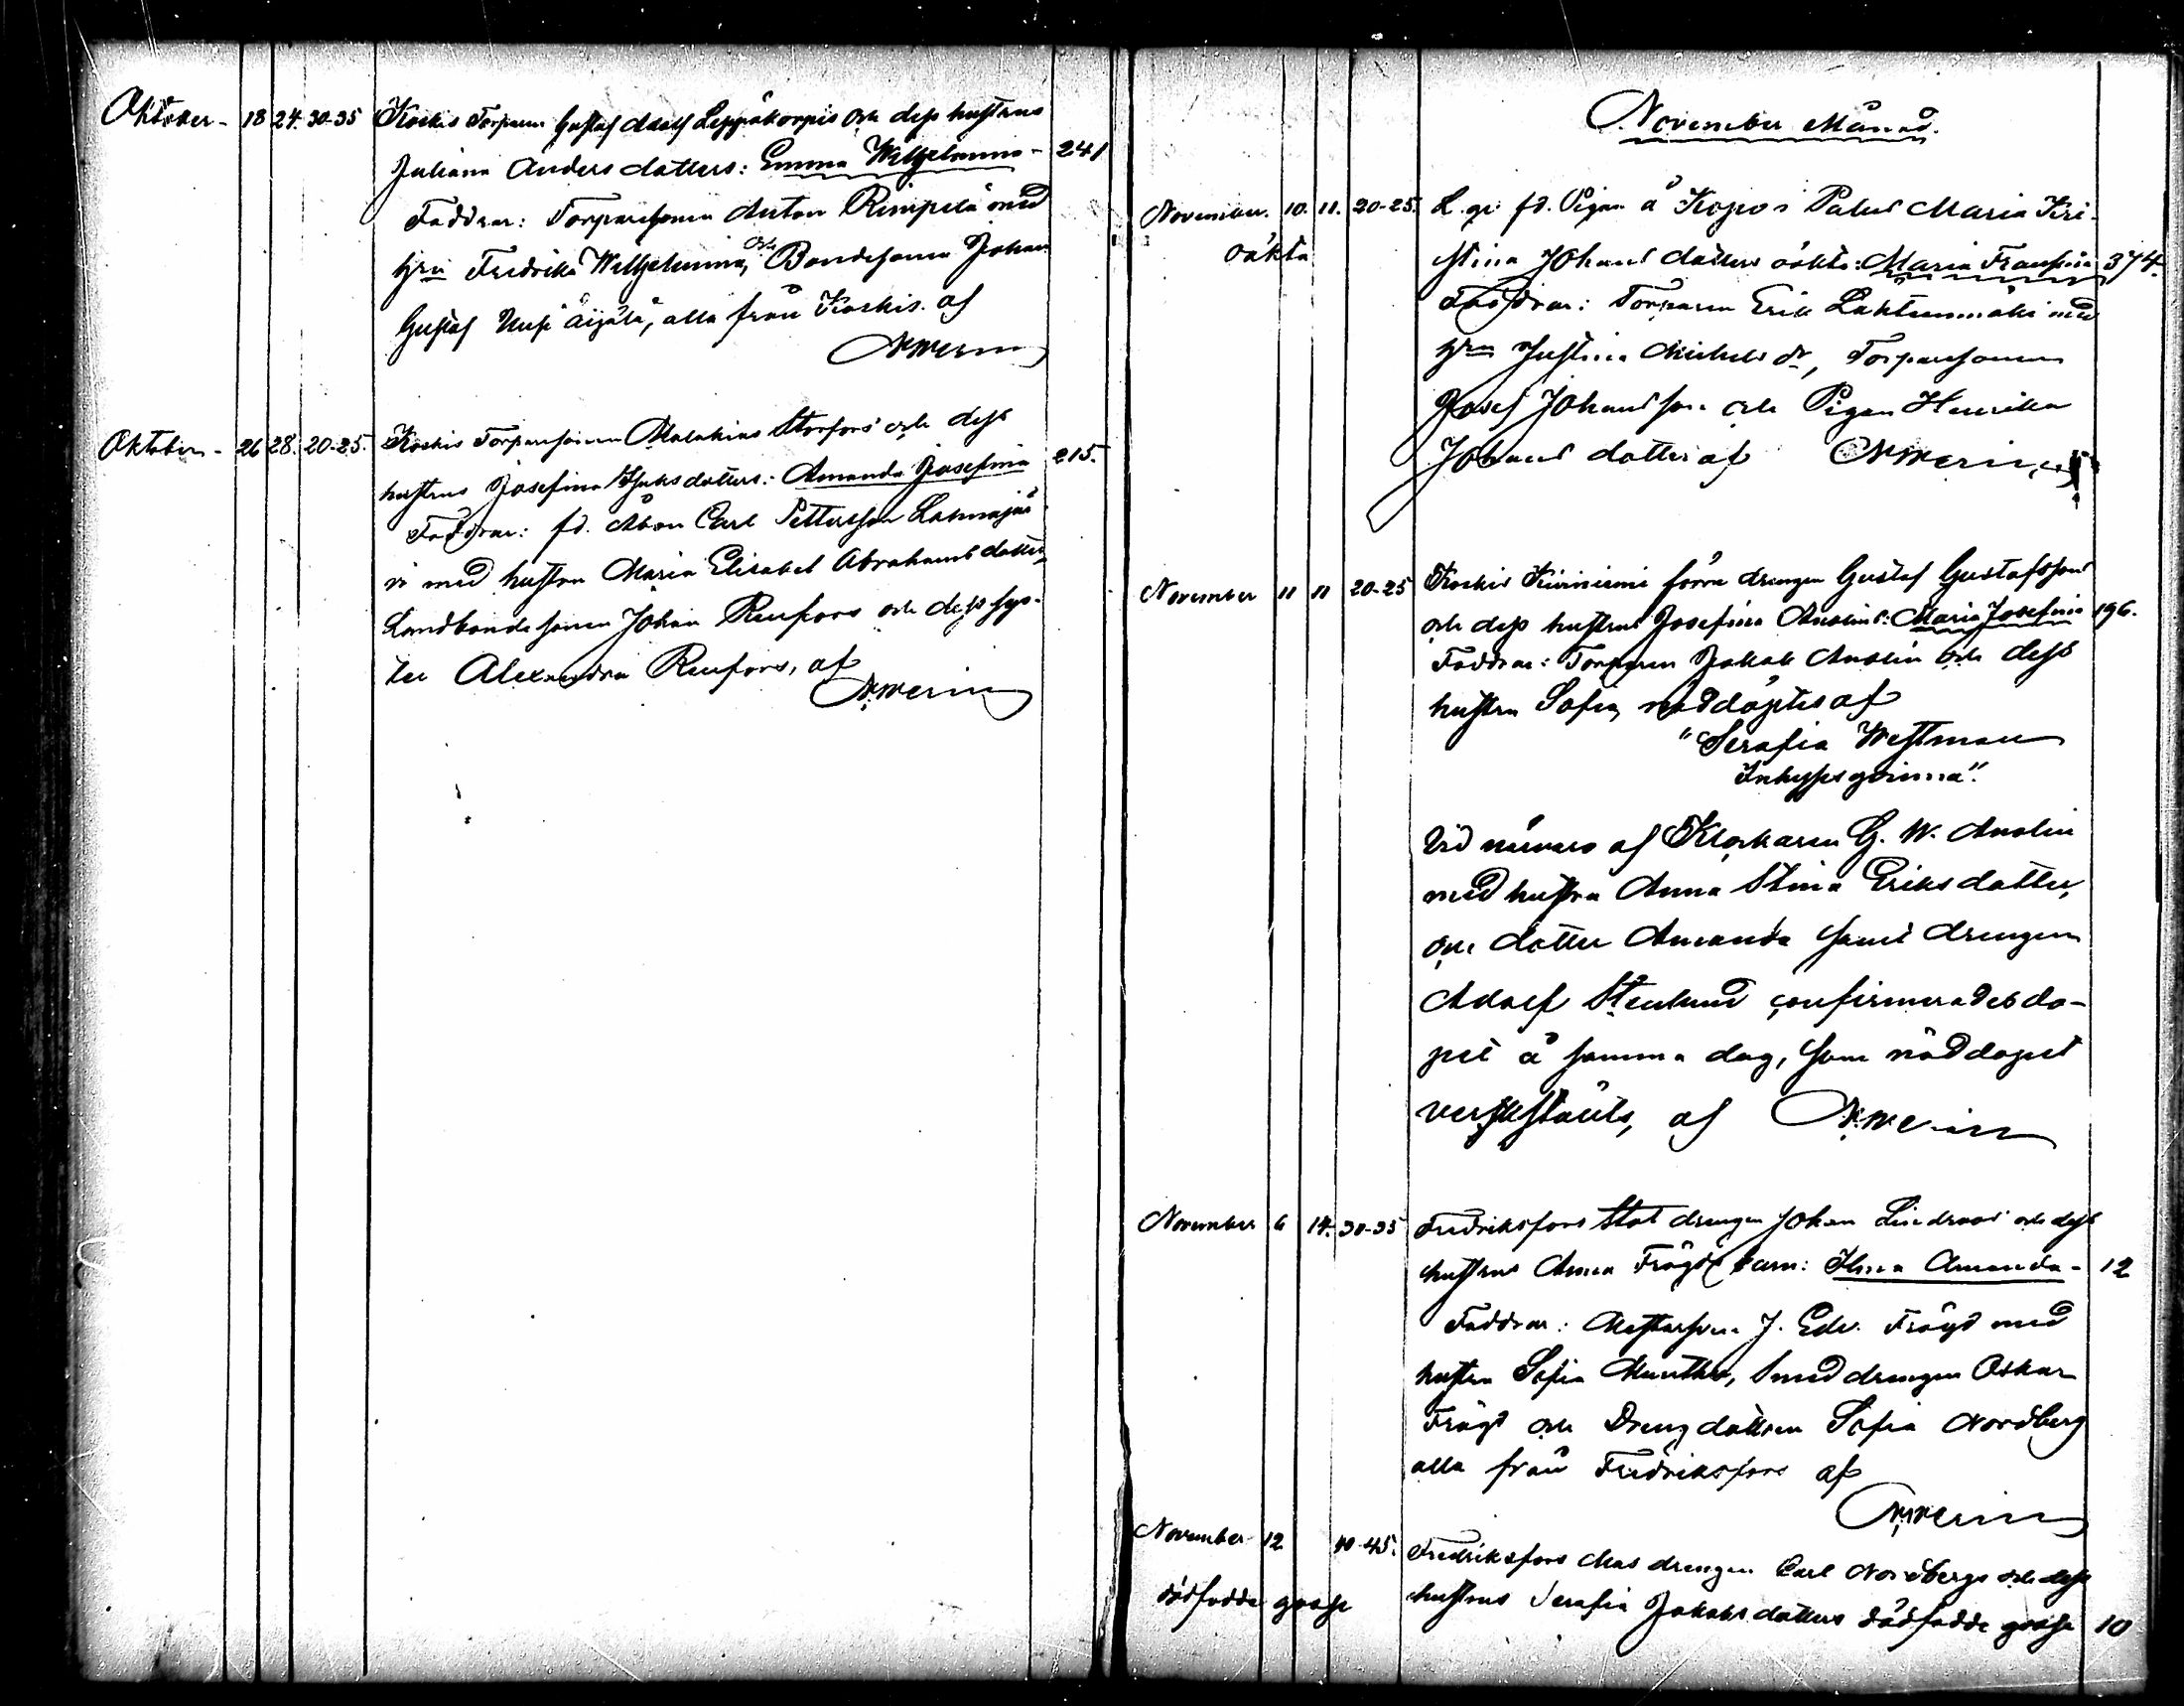 Oktober - 18 24. 30-35 Koskis Torparen Gustaf Adolf Leppäkorpis och dess hustrus
Juliana Andersdotters: Emma Wilhelmina - 241
Faddrar: Torparesonen Anton Rimpelä med
hru Fredrika Wilhelmina, och Bondesonen Johan
Gustaf Uusi Äijälä, alla från Koskis. af
Oktober - 26 28. 20-25. Koskis Torparesonen Malakias Storfors och dess
hustrus Josefina Isaksdotters: Amanda Josefina 215.
Faddrar: fd. Åbon Carl Pettersson Lahnajär
vi med hustru Maria Elisabet Abrahamsdotter,
Landbondesonen Johan Renfors och dess sys-
ter Alexandra Renfors, af
November Månad.
November. 10. 11. 20-25. L. gr. fd. Pigan å Kopois Maria Kri-
oäkta
stina Johansdotters oäkta: Maria Fransina 374.
Faddrar: Torparen Erik Lahteenmäki med
hru Justina Michelsdr, Torparesonen
Josef Johansson och Pigan Henrika
Johansdotter af
November 11 11 20-25 Koskis Kiviniemi förra drengen Gustaf Gustafssons
och dess hustrus Josefina Anolins: Maria Josefina 196.
Faddrar: Torparen Jakob Anolin och dess
hustru Sofia, nöddöptes af
"Serafia Westman
Inhysesqvinna".
Vid närvaro af Klockaren G. W. Anolin
med hustru Anna Stina Eriksdotter,
och dotter Amanda samt drengen
Adolf Stenlund confirmerades do-
pet å samma dag, som nöddopet
verkstälts, af
November 6 14. 30-35 Fredriksfors Stat drengen Johan Lindroos och dess
hustrus Anna Fröjds barn: Ilma Amanda - 12
Faddrar: Mästarson J. Edv. Fröjd med
hustru Sofia Munther, Smeddrengen Oskar
Fröjd och Drengdottren Sofia Nordberg
alla från Fredriksfors af
November 12 40-45. Fredriksfors Mas drengen Carl Nordbergs och dess
dödfödde gosse hustrus Serafia Jakobsdotters dödfödde gosse 10